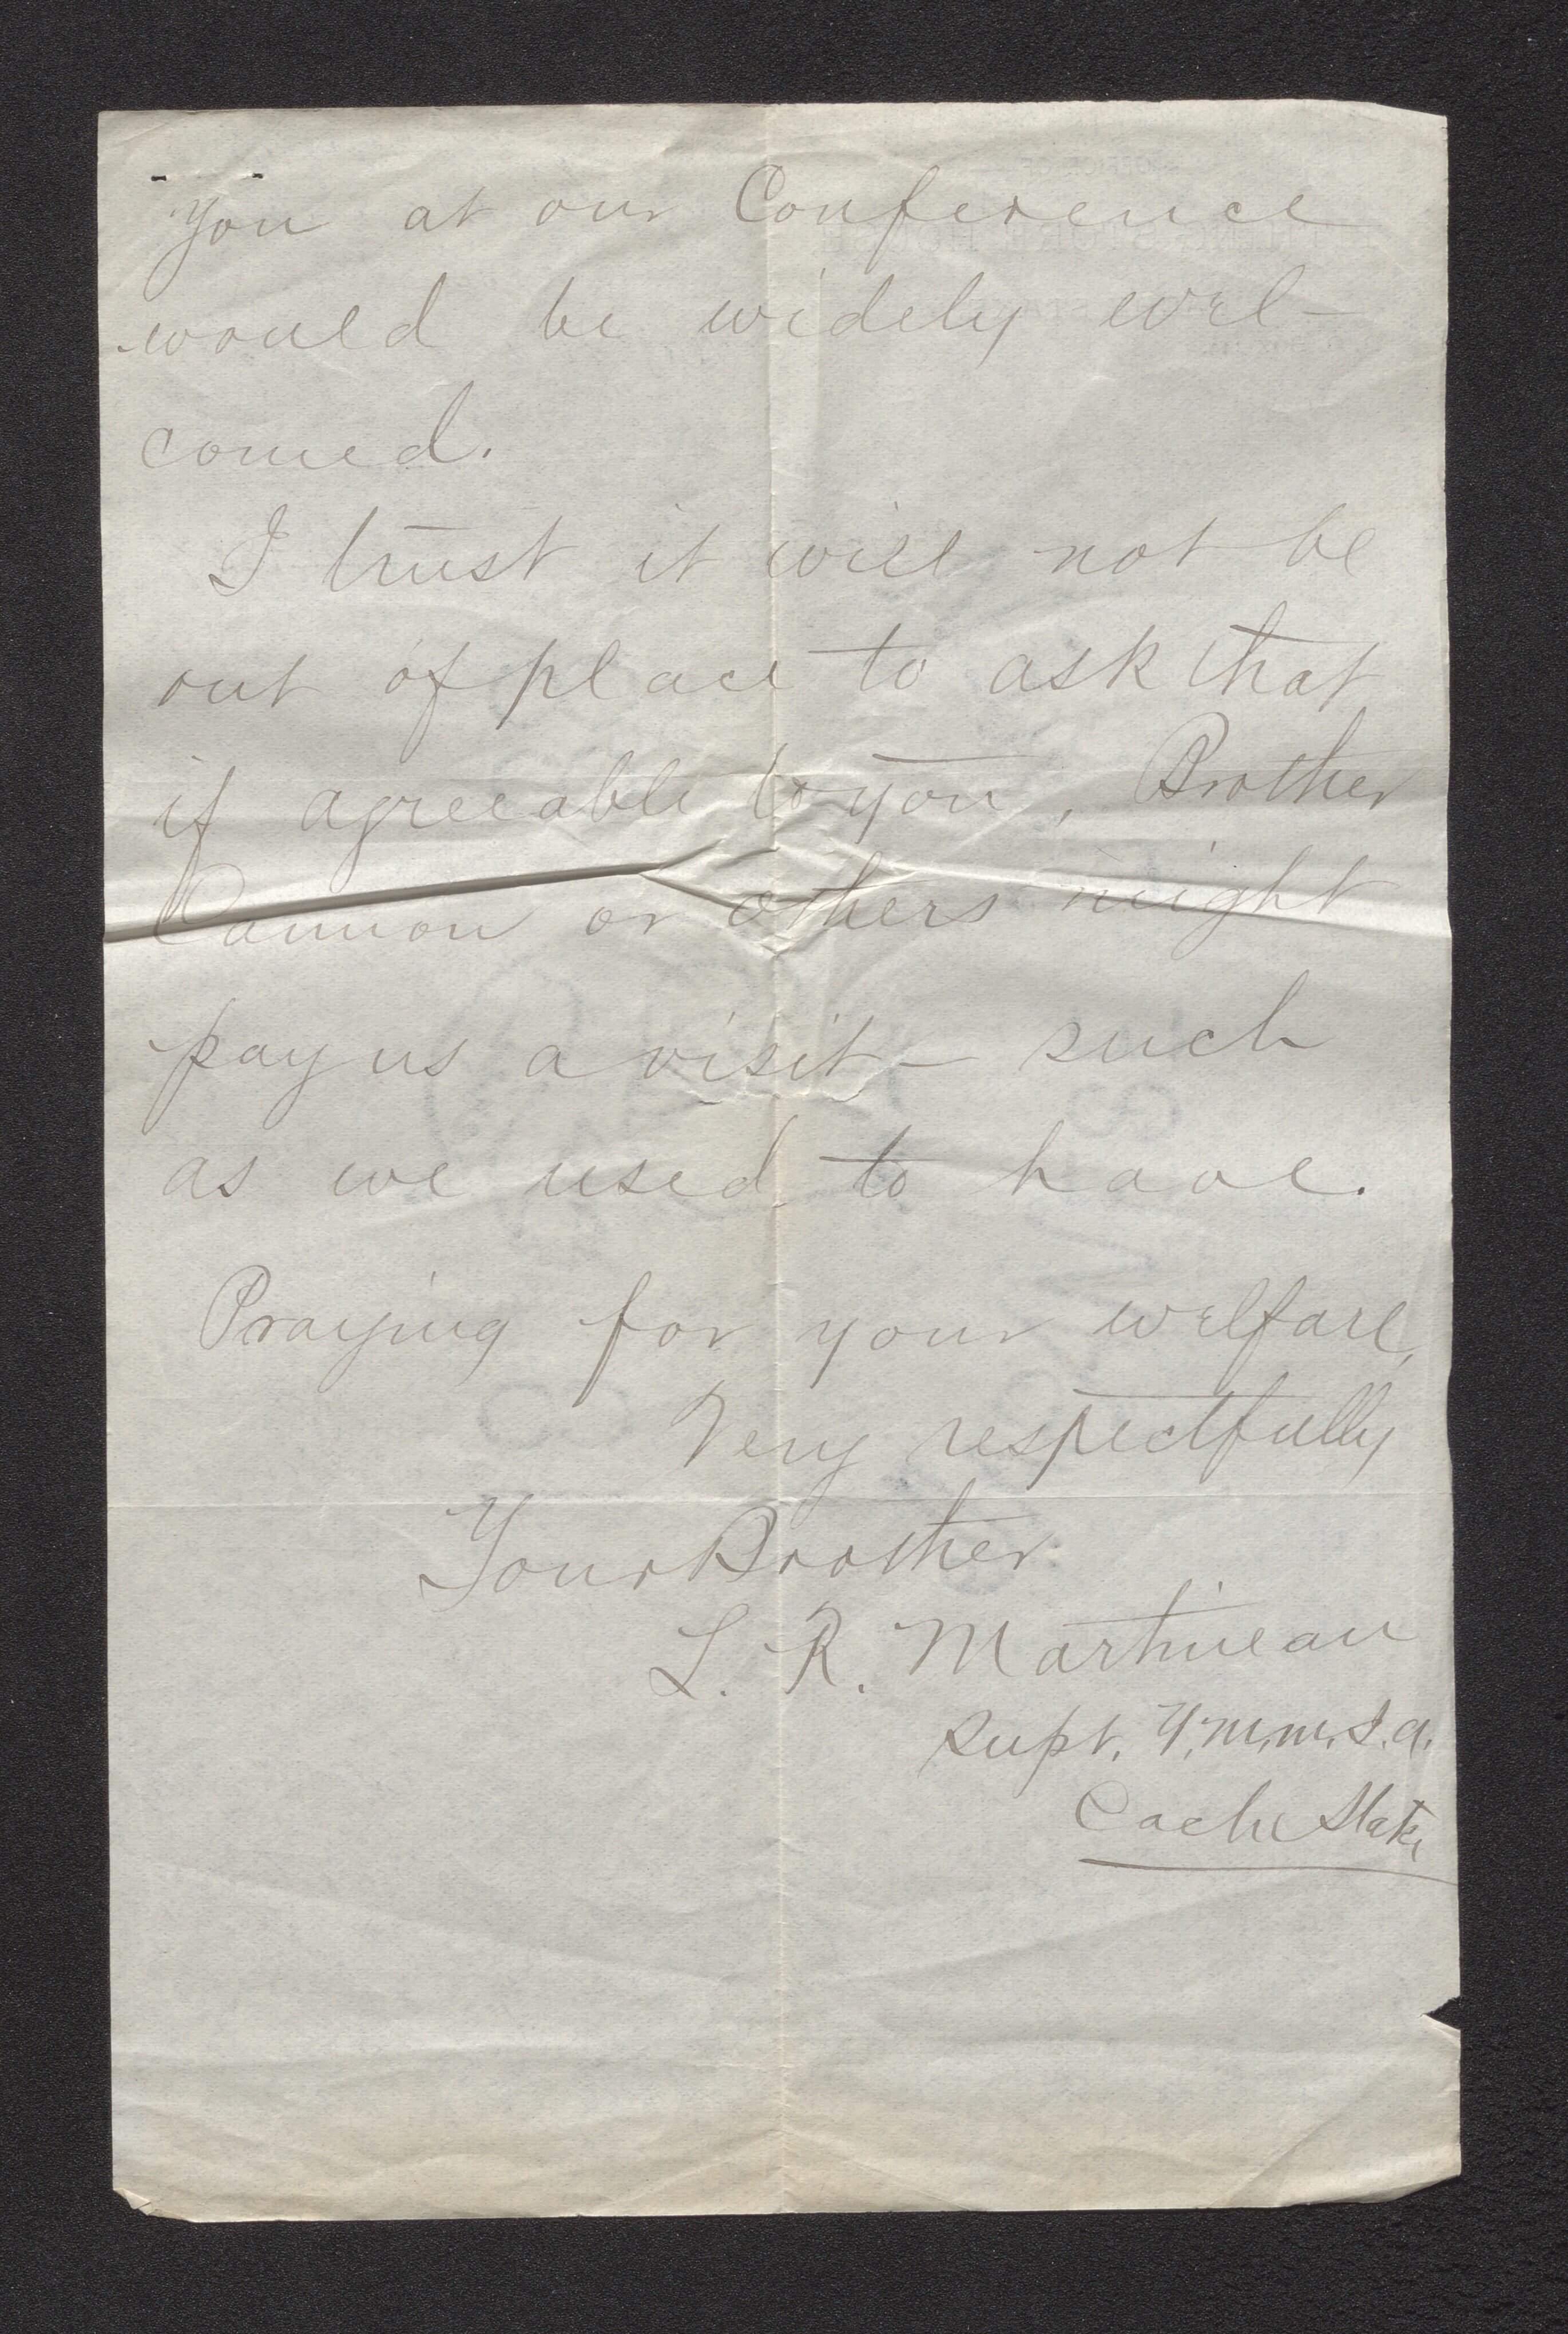 You at our Conference
would be widely wel-
comed.
I trust it will not be
out of place to ask that
if agreeable to you, Brother
Cannon or others might
pay us a visit - such
as we used to have.
Praying for your welfare,
Very respectfully
Your Brother
L. R. Martineau
Supt. Y.M.M.I.A.
Cache Stake